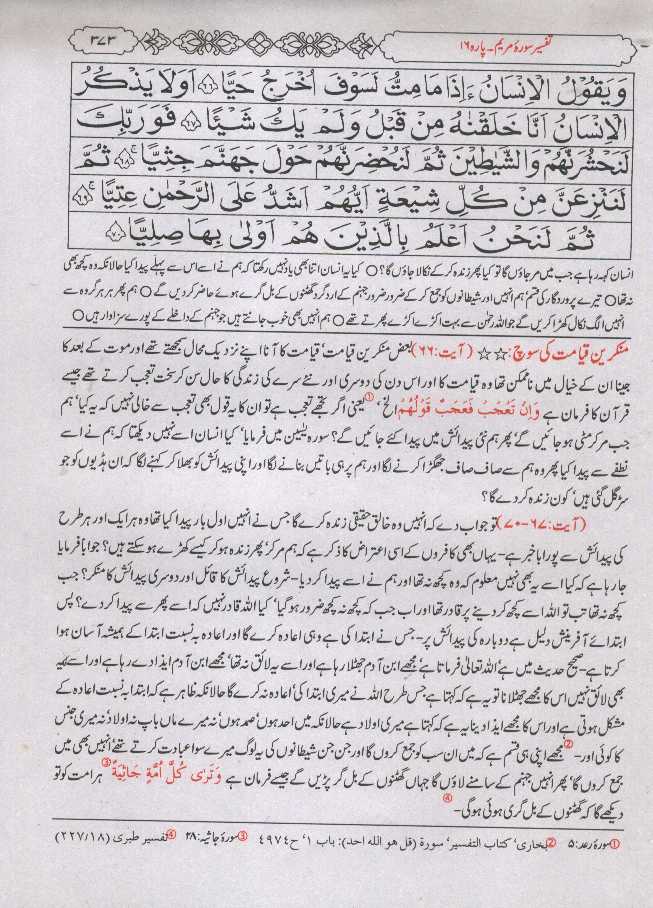 تفسیر سورۂ مریم۔ پارہ ۱۶
۳۷۳
وَيَقُوْلُ الْاِنْسَانُ ءَاِذَا مَا مِتُّ لَسَوْفَ اُخْرَجُ حَيًّا ﴿۶۶﴾ اَوَلَا يَذْكُرُ
الْاِنْسَانُ اَنَّا خَلَقْنٰهُ مِنْ قَبْلُ وَلَمْ يَكُ شَيْـًٔا ﴿۶۷﴾ فَوَرَبِّكَ
لَنَحْشُرَنَّهُمْ وَالشَّيٰطِيْنَ ثُمَّ لَنُحْضِرَنَّهُمْ حَوْلَ جَهَنَّمَ جِثِيًّا ﴿۶۸﴾ ثُمَّ
لَنَنْزِعَنَّ مِنْ كُلِّ شِيْعَةٍ اَيُّهُمْ اَشَدُّ عَلَى الرَّحْمٰنِ عِتِيًّا ﴿۶۹﴾
ثُمَّ لَنَحْنُ اَعْلَمُ بِالَّذِيْنَ هُمْ اَوْلٰى بِهَا صِلِيًّا ﴿۷۰﴾
انسان کہہ رہا ہے جب میں مر جاؤں گا تو کیا پھر زندہ کر کے نکالا جاؤں گا؟ ○ کیا یہ انسان اتنا بھی یاد نہیں رکھتا کہ ہم نے اسے اس سے پہلے پیدا کیا حالانکہ وہ کچھ بھی
نہ تھا ○ تیرے پروردگار کی قسم ہم انہیں اور شیطانوں کو جمع کر کے ضرور ضرور جہنم کے اردگرد گھٹنوں کے بل گرے ہوئے حاضر کر دیں گے ○ ہم پھر ہر ہر گروہ سے
انہیں الگ نکال کھڑا کریں گے جو اللہ رحمٰن سے بہت اکڑے اکڑے پھرتے تھے ○ ہم انہیں بھی خوب جانتے ہیں جو جہنم کے داخلے کے پورے سزاوار ہیں ○
منکرین قیامت کی سوچ: ☆☆ (آیت:۶۶) بعض منکرین قیامت' قیامت کا آنا اپنے نزدیک محال سمجھتے تھے اور موت کے بعد کا
جینا ان کے خیال میں ناممکن تھا وہ قیامت کا اور اس دن کی دوسری اور نئے سرے کی زندگی کا حال سن کر سخت تعجب کرتے تھے جیسے
قرآن کا فرمان ہے وَاِنْ تَعْجَبْ فَعَجَبٌ قَوْلُهُمْ الخ' ① یعنی اگر تجھے تعجب ہے تو ان کا یہ قول بھی تعجب سے خالی نہیں کہ یہ کیا' ہم
جب مر کر مٹی ہو جائیں گے' پھر ہم نئی پیدائش میں پیدا کئے جائیں گے؟ سورہ یٰسین میں فرمایا' کیا انسان اسے نہیں دیکھتا کہ ہم نے اسے
نطفے سے پیدا کیا پھر وہ ہم سے صاف صاف جھگڑا کرنے لگا اور ہم پر ہی باتیں بنانے لگا اور اپنی پیدائش کو بھلا کر کہنے لگا کہ ان ہڈیوں کو جو
سڑ گل گئی ہیں' کون زندہ کر دے گا؟
(آیت:۶۷-۷۰) تو جواب دے کہ انہیں وہ خالق حقیقی زندہ کرے گا جس نے انہیں اول بار پیدا کیا تھا وہ ہر ایک اور ہر طرح
کی پیدائش سے پورا باخبر ہے- یہاں بھی کافروں کے اسی اعتراض کا ذکر ہے کہ ہم مر کر' پھر زندہ ہو کر کیسے کھڑے ہو سکتے ہیں؟ جواباً فرمایا
جا رہا ہے کہ کیا اسے یہ بھی نہیں معلوم کہ وہ کچھ نہ تھا اور ہم نے اسے پیدا کر دیا- شروع پیدائش کا قائل اور دوسری پیدائش کا منکر؟ جب
کچھ نہ تھا تب تو اللہ اسے کچھ کر دینے پر قادر تھا اور اب جب کہ کچھ نہ کچھ ضرور ہو گیا' کیا اللہ قادر نہیں کہ اسے پھر سے پیدا کر دے؟ پس
ابتدائے آفرینش دلیل ہے دوبارہ کی پیدائش پر- جس نے ابتدا کی ہے وہی اعادہ کرے گا اور اعادہ بہ نسبت ابتدا کے ہمیشہ آسان ہوا
کرتا ہے- صحیح حدیث میں ہے' اللہ تعالیٰ فرماتا ہے' مجھے ابن آدم جھٹلا رہا ہے اور اسے یہ لائق نہ تھا' مجھے ابن آدم ایذا دے رہا ہے اور اسے یہ
بھی لائق نہیں اس کا مجھے جھٹلانا تو یہ ہے کہ کہتا ہے جس طرح اللہ نے میری ابتدا کی' اعادہ نہ کرے گا حالانکہ ظاہر ہے کہ ابتدا بہ نسبت اعادہ کے
مشکل ہوتی ہے اور اس کا مجھے ایذا دینا یہ ہے کہ کہتا ہے میری اولاد ہے حالانکہ میں احد ہوں' صمد ہوں' نہ میرے ماں باپ نہ اولاد' نہ میری جنس
کا کوئی اور- ② مجھے اپنی ہی قسم ہے کہ میں ان سب کو جمع کروں گا اور جن جن شیطانوں کی یہ لوگ میرے سوا عبادت کرتے تھے' انہیں بھی میں
جمع کروں گا' پھر انہیں جہنم کے سامنے لاؤں گا جہاں گھٹنوں کے بل گر پڑیں گے جیسے فرمان ہے وَتَرٰى كُلَّ اُمَّةٍ جَاثِيَةً ③ ہر امت کو تو
دیکھے گا کہ گھٹنوں کے بل گری ہوئی ہو گی- ④
① سورۂ رعد:۵ ② بخاری' كتاب التفسير' سورة (قل هو الله احد): باب ۱' ح ۴۹۷۴ ③ سورۂ جاثیہ: ۲۸ ④ تفسير طبري (۲۲۷/۱۸)